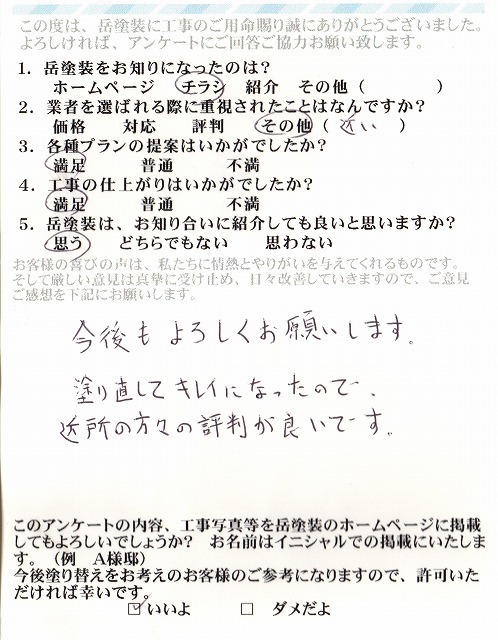 この度は、岳塗装に工事のご用命賜り誠にありがとうございました。
よろしければ、アンケートにご回答ご協力お願い致します。
1．岳塗装をお知りになったのは？
ホームページ　チラシ　紹介　その他（　　　　）
2．業者を選ばれる際に重視されたことはなんですか？
価格　　対応　　評判　　その他（ 近い ）
3．各種プランの提案はいかがでしたか？
満足　　　普通　　　不満
4．工事の仕上がりはいかがでしたか？
満足　　　普通　　　不満
5．岳塗装は、お知り合いに紹介しても良いと思いますか？
思う　　どちらでもない　　思わない
お客様の喜びの声は、私たちに情熱とやりがいを与えてくれるものです。
そして厳しい意見は真摯に受け止め、日々改善していきますので、ご意見
ご感想を下記にお願いします。
今後もよろしくお願いします。
塗り直してキレイになったので、
近所の方々の評判が良いです。
このアンケートの内容、工事写真等を岳塗装のホームページに掲載
してもよろしいでしょうか？　お名前はイニシャルでの掲載にいたしま
す。（例　A様邸）
今後塗り替えをお考えのお客様のご参考になりますので、許可いた
だければ幸いです。
☑いいよ　　□　ダメだよ